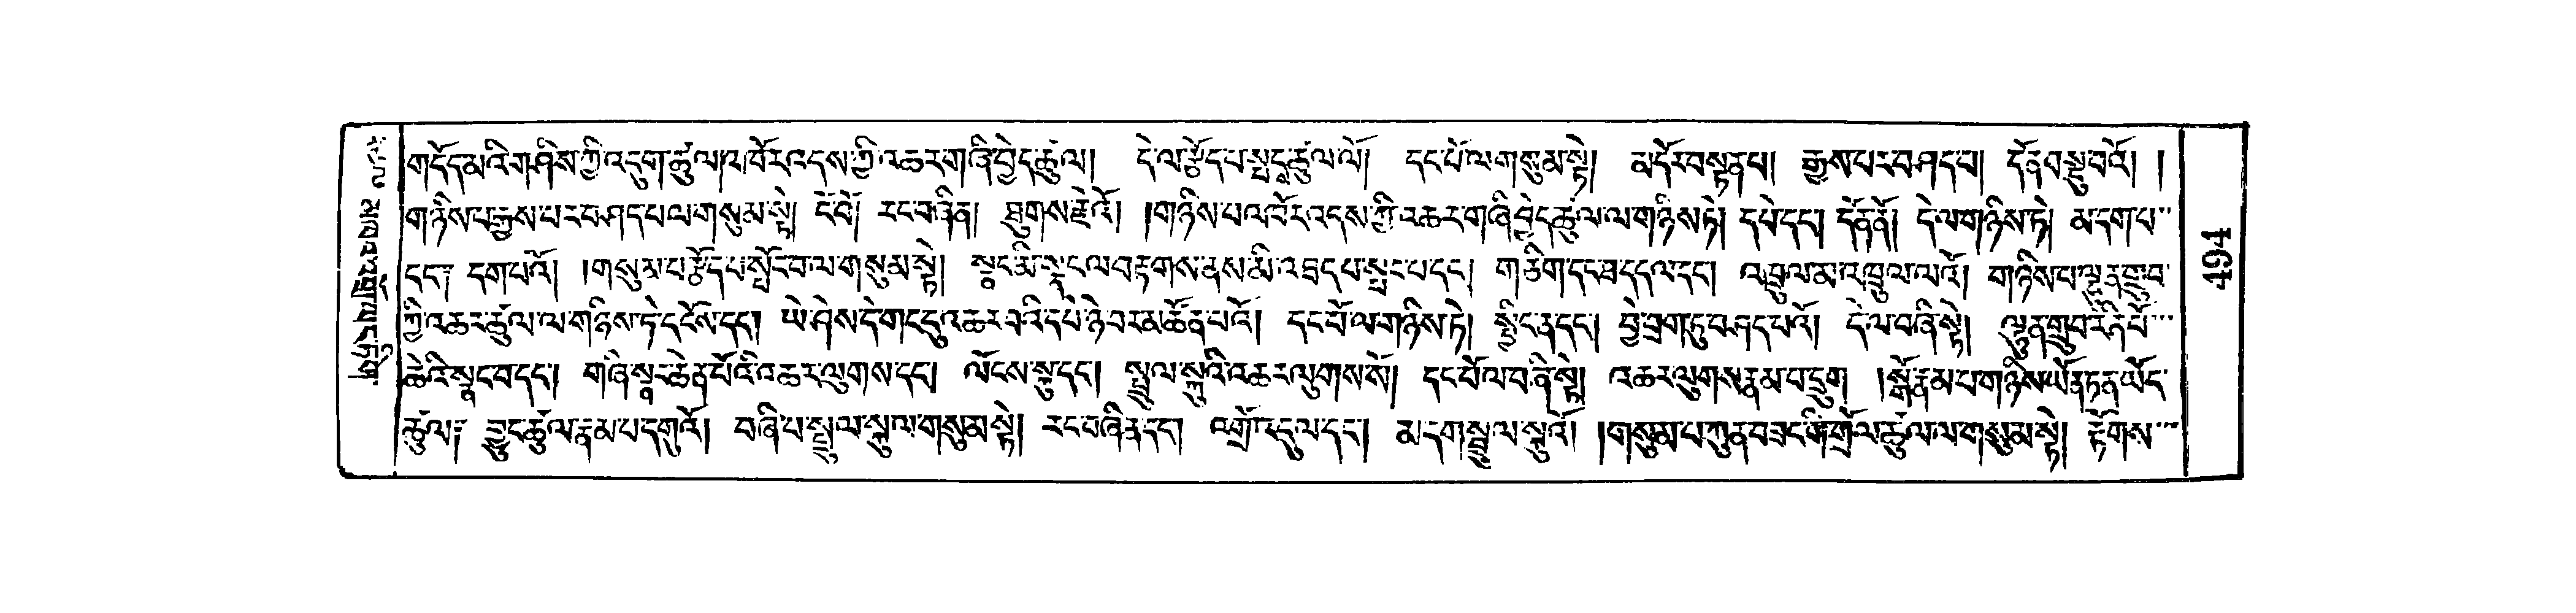 གདོད་མའི་གཤིས་ཀྱི་འདུག་ཚུལ། འཁོར་འདས་ཀྱི་འཆར་གཞི་བྱེད་ཚུལ། དེ་ལ་རྩོད་པ་སྤང་ཚུལ་ལོ། དང་པོ་ལ་གསུམ་སྟེ། མདོར་བསྟན་པ། རྒྱས་པར་བཤད་པ། དོན་བསྡུ་བའོ། །
གཉིས་པ་རྒྱས་པར་བཤད་པ་ལ་གསུམ་སྟེ། ངོ་བོ། རང་བཞིན། ཐུགས་རྗེའོ། །གཉིས་པ་འཁོར་འདས་ཀྱི་འཆར་གཞི་བྱེད་ཚུལ་ལ་གཉིས་ཏེ། དཔེ་དང། དོན་ནོ། དེ་ལ་གཉིས་ཏེ། མ་དག་པ་
དང༌། དག་པའོ། །གསུམ་པ་རྩོད་པ་སྤོང་བ་ལ་གསུམ་སྟེ། སྣང་མི་སྣང་ལ་བརྟགས་ནས་མི་འཐད་པ་སྤང་པ་དང། གཅིག་དང་ཐ་དད་ལ་དང། འཁྲུལ་མ་འཁྲུལ་ལའོ། གཉིས་པ་ལྷུན་གྲུབ་
ཀྱི་འཆར་ཚུལ་ལ་གཉིས་ཏེ་དངོས་དང། ཡེ་ཤེས་དེ་གང་དུ་འཆར་བའི་དཔེ་ཉེ་བར་མཚོན་པའོ། དང་པོ་ལ་གཉིས་ཏེ། སྤྱི་དང་། བྱེ་བྲག་ཏུ་བཤད་པའོ། དེ་ལ་བཞི་སྟེ། ལྷུན་གྲུབ་རིན་པོ་
ཆེའི་སྣང་བ་དང། གཞི་སྣང་ཆེན་པོའི་འཆར་ལུགས་དང། ལོངས་སྐུ་དང། སྤྲུལ་སྐུའི་འཆར་ལུགས་སོ། དང་པོ་ལ་བཞི་སྟེ། འཆར་ལུགས་རྣམ་པ་དྲུག །སྒོ་རྣམ་པ་གཉིས་ཡོན་ཏན་ཡོད་
ཚུལ༌། བྱུང་ཚུལ་རྣམ་པ་དགུའོ། བཞི་པ་སྤྲུལ་སྐུ་ལ་གསུམ་སྟེ། རང་བཞིན་དང། འགྲོ་འདུལ་དང། མ་དག་སྤྲུལ་སྐུའོ། །གསུམ་པ་ཀུན་བཟང་གི་གྲོལ་ཚུལ་ལ་གསུམ་སྟེ། རྟོགས་